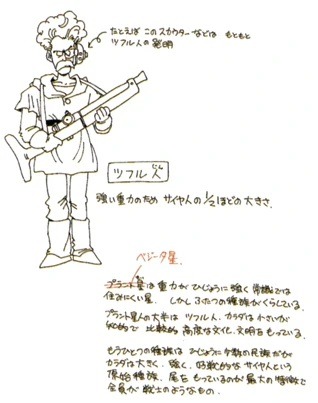 たとえば このスカウターなどは もともと
ツフル人の発明
じん
ツフル人
強い重力のため サイヤ人の1/2ほどの大きさ
ベジータ星
プラント星は重力がひじょうに強く 常識では
住みにくい星。しかし ふたつの種族がくらしている。
プラント星人の大半は ツフル人、カラダは小さいが
知的で 比較的 高度な文化、文明をもっている。
もうひとつの種族は ひじょうに少数の民族だが
カラダは大きく、強く、好戦的な サイヤ人という
原始種族、尾を もっているのが 最大の特徴で
全員が 戦士のようなもの。